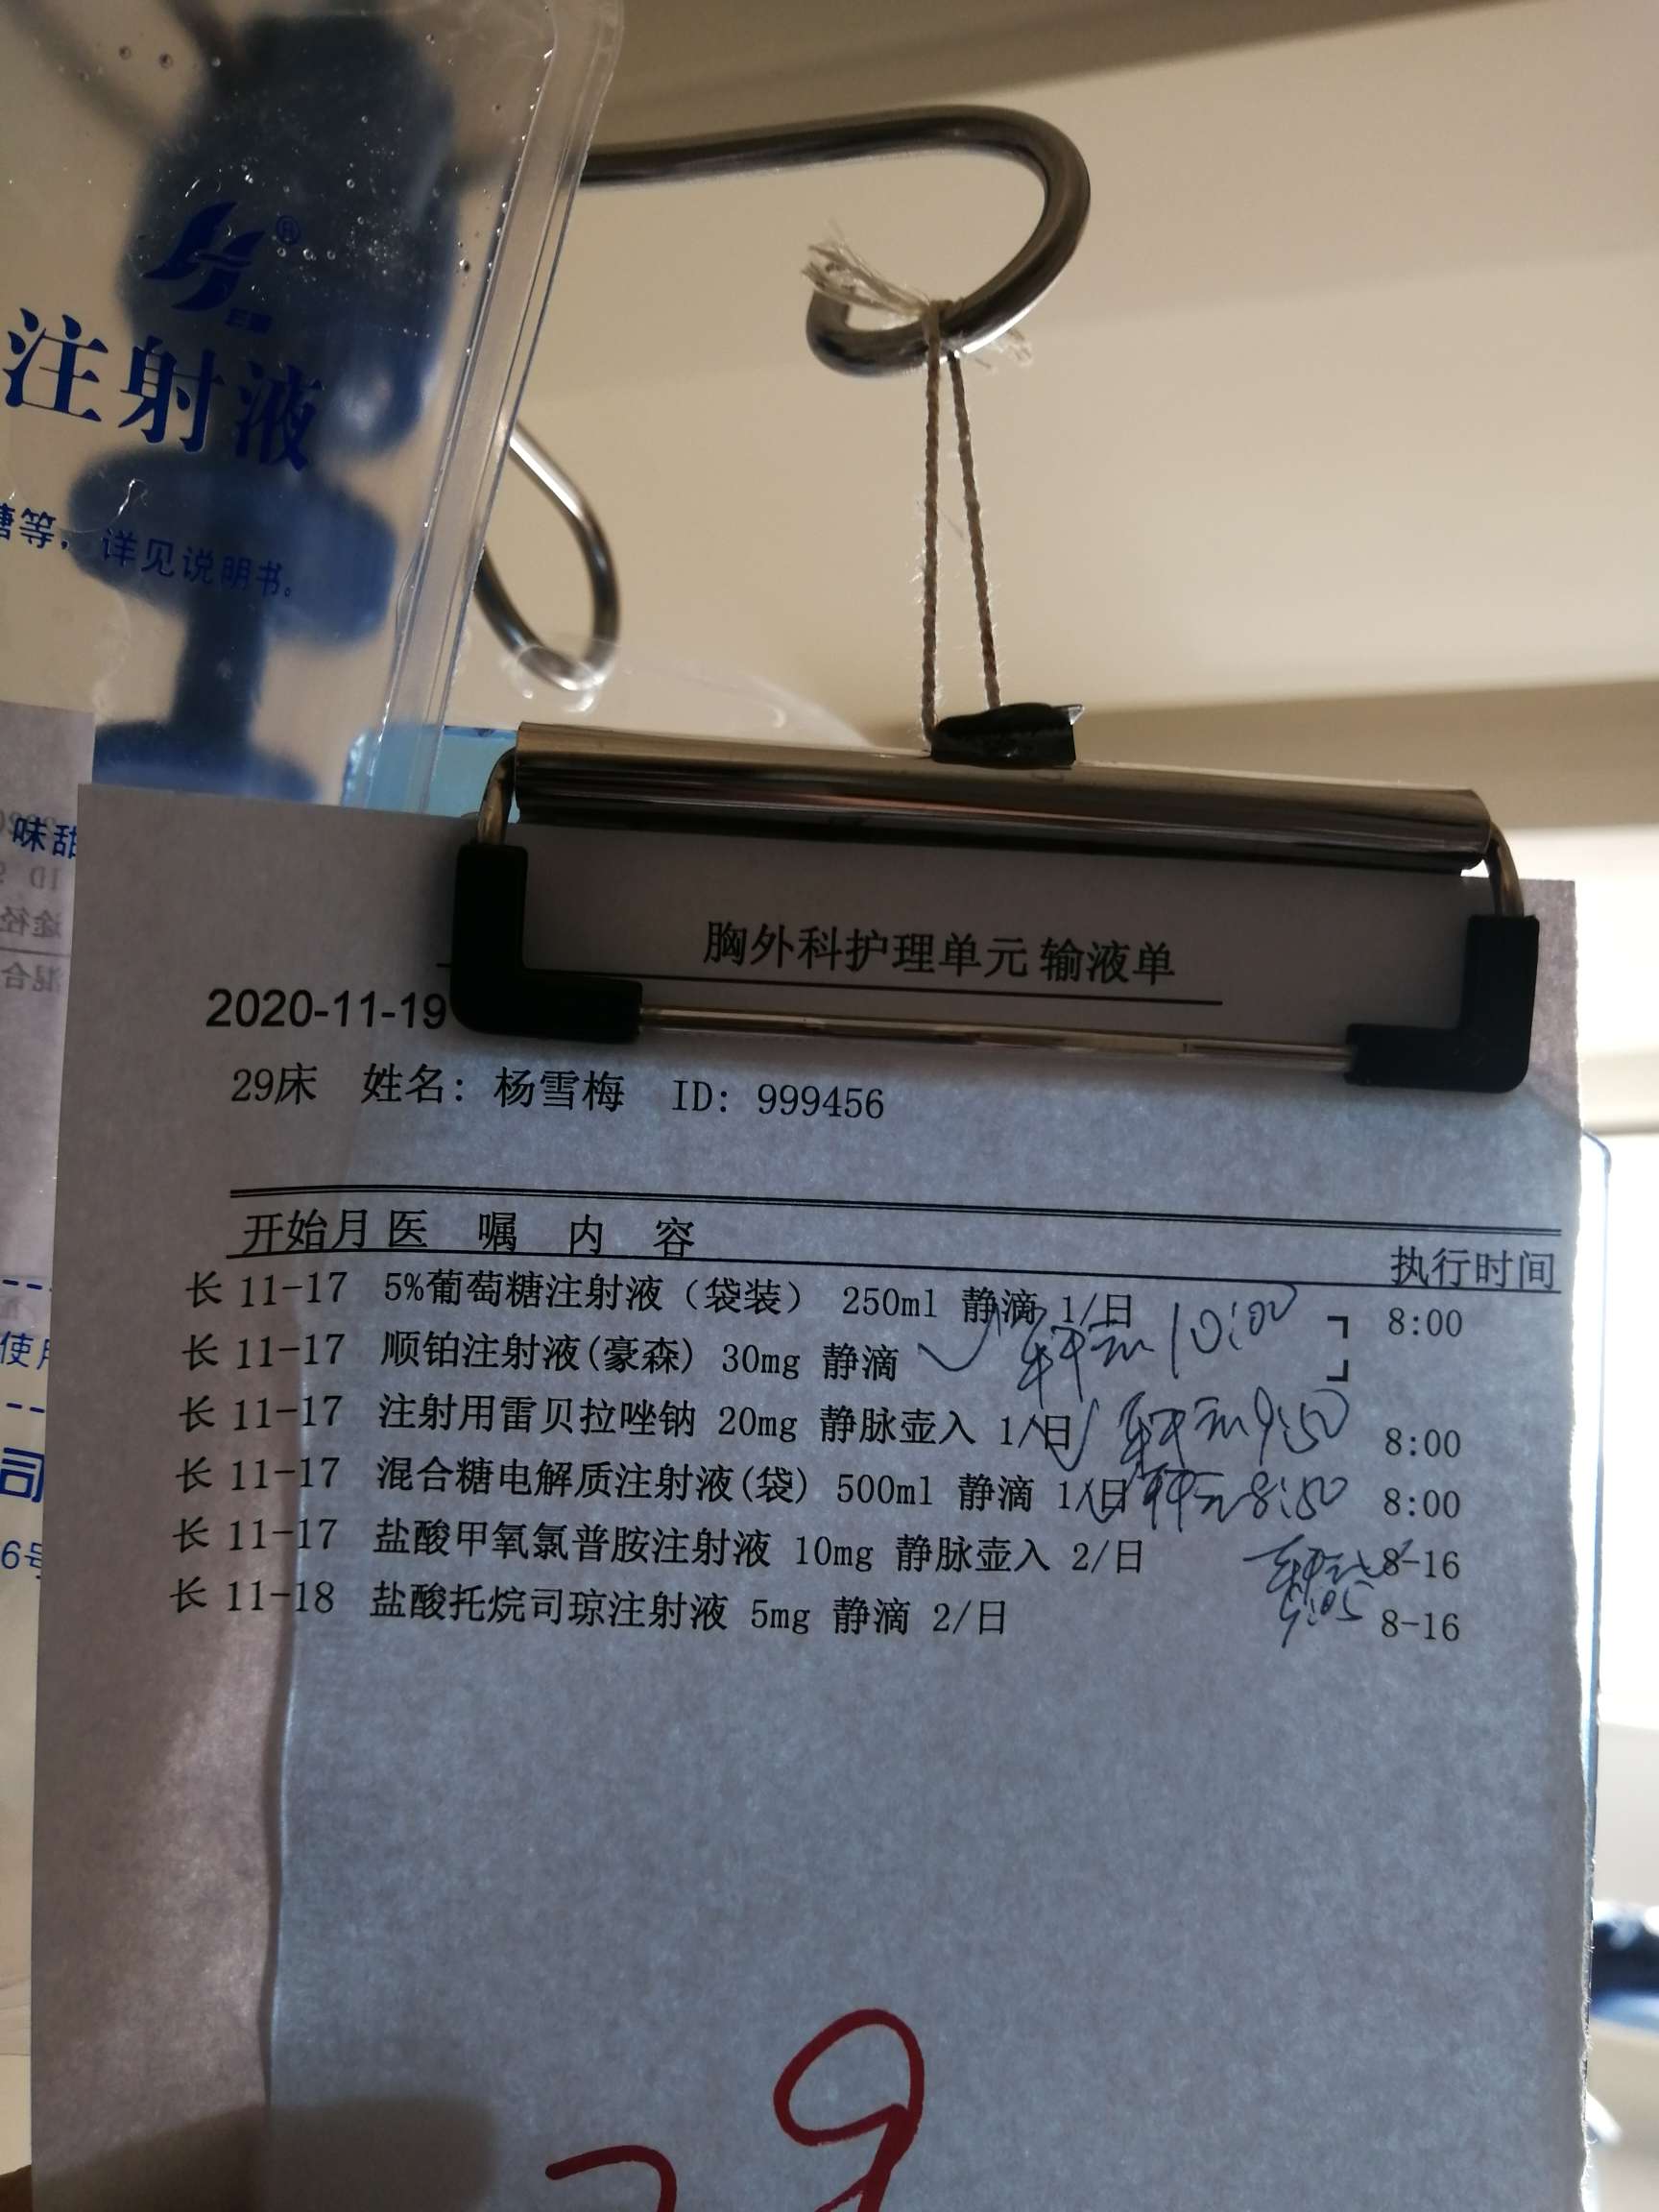 注射液
糖等，详见说明书。
味甜
使用
司
6号
胸外科护理单元 输液单
2020-11-19
29床 姓名: 杨雪梅 ID: 999456
开始月 医 嘱 内 容 执行时间
长 11-17 5%葡萄糖注射液（袋装） 250ml 静滴 1/日 8:00
长 11-17 顺铂注射液(豪森) 30mg 静滴 10:00
长 11-17 注射用雷贝拉唑钠 20mg 静脉壶入 1/日 9:50 8:00
长 11-17 混合糖电解质注射液(袋) 500ml 静滴 1/日 8:50 8:00
长 11-17 盐酸甲氧氯普胺注射液 10mg 静脉壶入 2/日 8-16
长 11-18 盐酸托烷司琼注射液 5mg 静滴 2/日 9:05 8-16
29